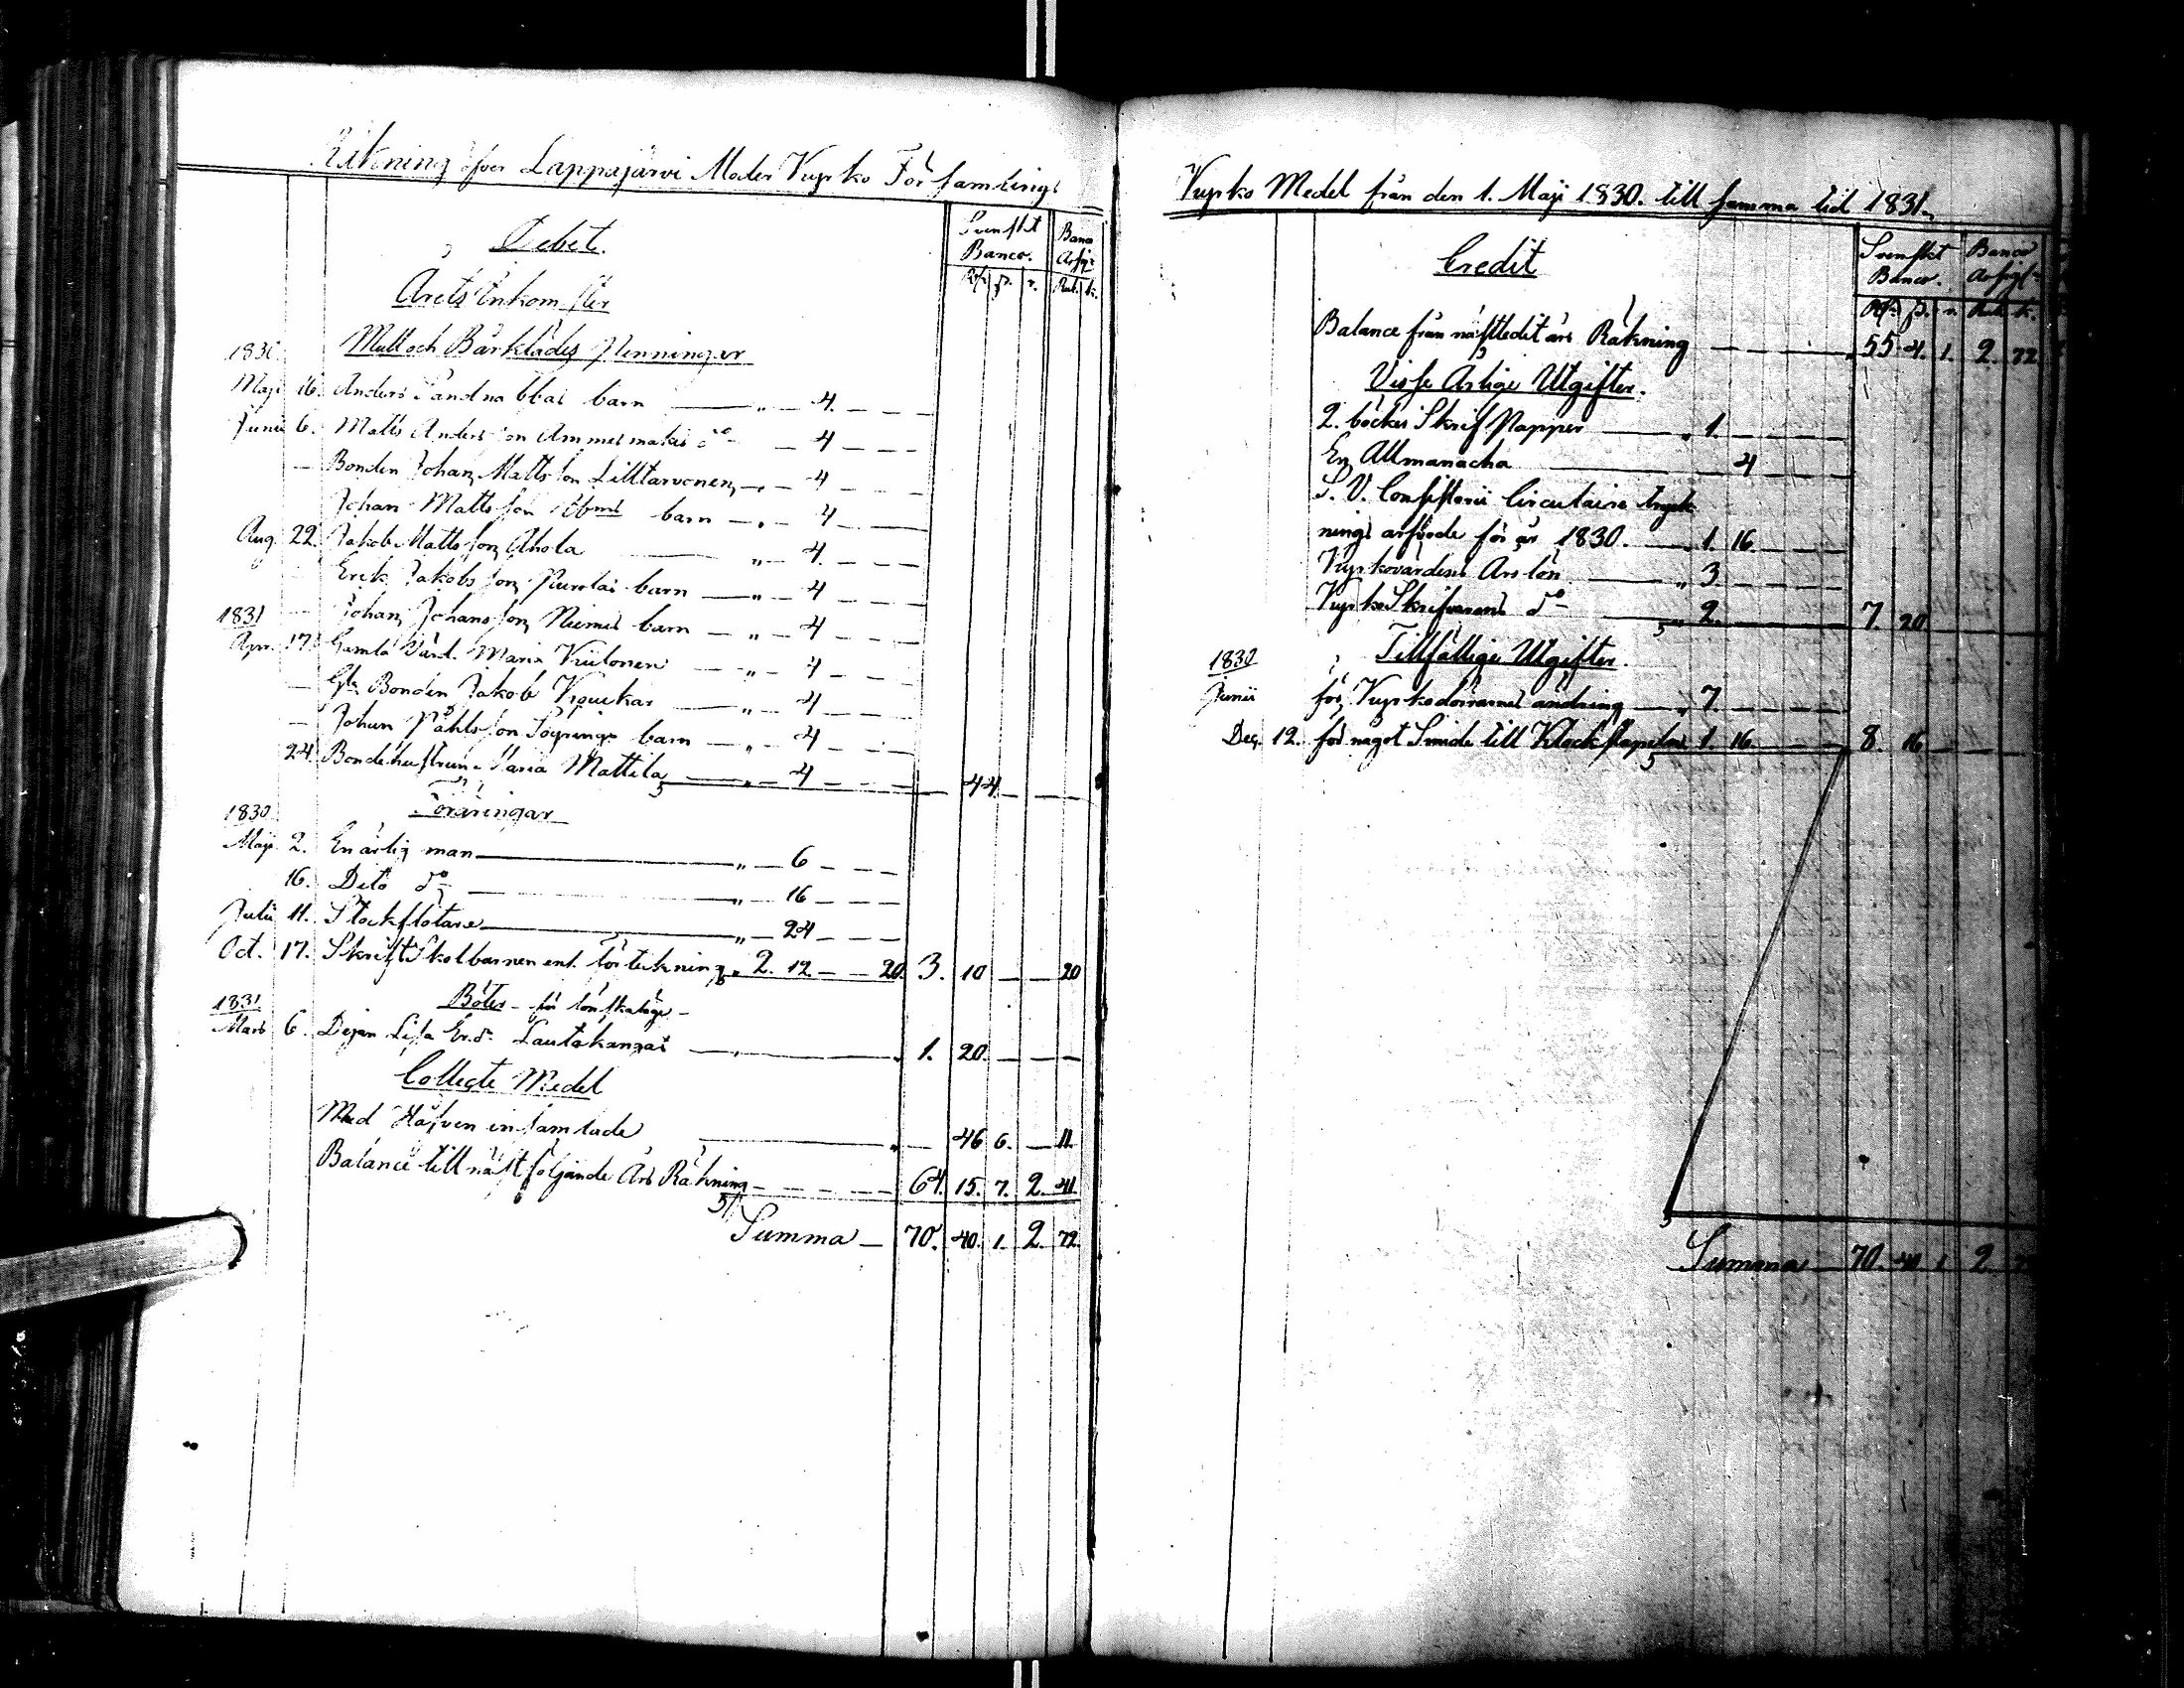 Räkning öfver Lappajärvi Moder Kyrko Församlings
Svenskt Banco. Banco Assig:
Rdr. s. r. Rub. k.
Debet.
Årets Inkomster
1830. Mull och Bårklädes Penningar
Maji 16. Anders Sandnabbas barn — " — 4. — — —
Junii 6. Matts Andersson Ammesmäkis do — 4 — — —
— Bonden Johan Mattsson Lilltarvonen — " — 4 — — —
Johan Mattsson barn — " — 4 — — —
Aug. 22. Jakob Mattsson Ahola " — 4. — — —
Erik Jakobsson Purolas barn — " — 4 — — —
1831 — Johan Johansson Niemis barn — " — 4 — — —
Apr. 17. Gamla Värd. Maria Kiilonen — " — 4 — — —
— Gla Bonden Jakob — " — 4 — — —
— Johan Påhlsson barn — " — 4 — — —
24. Bondehustrun Maria Mattila — " — 4 — — — 44. — — —
Föräringar
1830
Maji 2. En ärlig man — " — 6 — — —
16. Dito do — " — 16 — — —
Julii 11. Stockflötare — " — 24 — — —
Oct. 17. Skriftskolbarnen enl. förteckning " 2. 12 — — 20. 3. 10 — — 20
Böter för lönskaläge
1831
Mars 6. Pigan Lisa Er.dr Lautakangas — " 1. 20. — — —
Collecte Medel
Med Håfven insamlade — " — 46 6. — 11.
Balance till nästföljande Års Räkning — — — — 64. 15. 7. 2. 41.
Summa — 70. 40. 1. 2. 72.
Kyrko Medel från den 1. Maji 1830. till samma tid 1831.
Svenskt Banco. Banco Assig:
Rdr. s. r. Rub. k.
Credit
Balance från nästledit års Räkning — — — 55. 4. 1. 2. 72
Visse Årlige Utgifter.
2. böcker Skrif Papper — " 1. — — —
En Allmanacha — 4 — —
S. V. Consistorii Circulairs tryck
nings arfvode för år 1830. — 1. 16. — —
Kyrkovärdens Års lön — " 3 — — —
Kyrko Skrifvarens do — 2. — — — 7. 20
Tillfällige Utgifter.
1830
Junii för Kyrkodörrarnes ändring — " 7. — — —
Dec. 12. för något Smide till Klockstapeln 1. 16 — — 8. 16 — — —
Summa — 70. 40 1. 2.